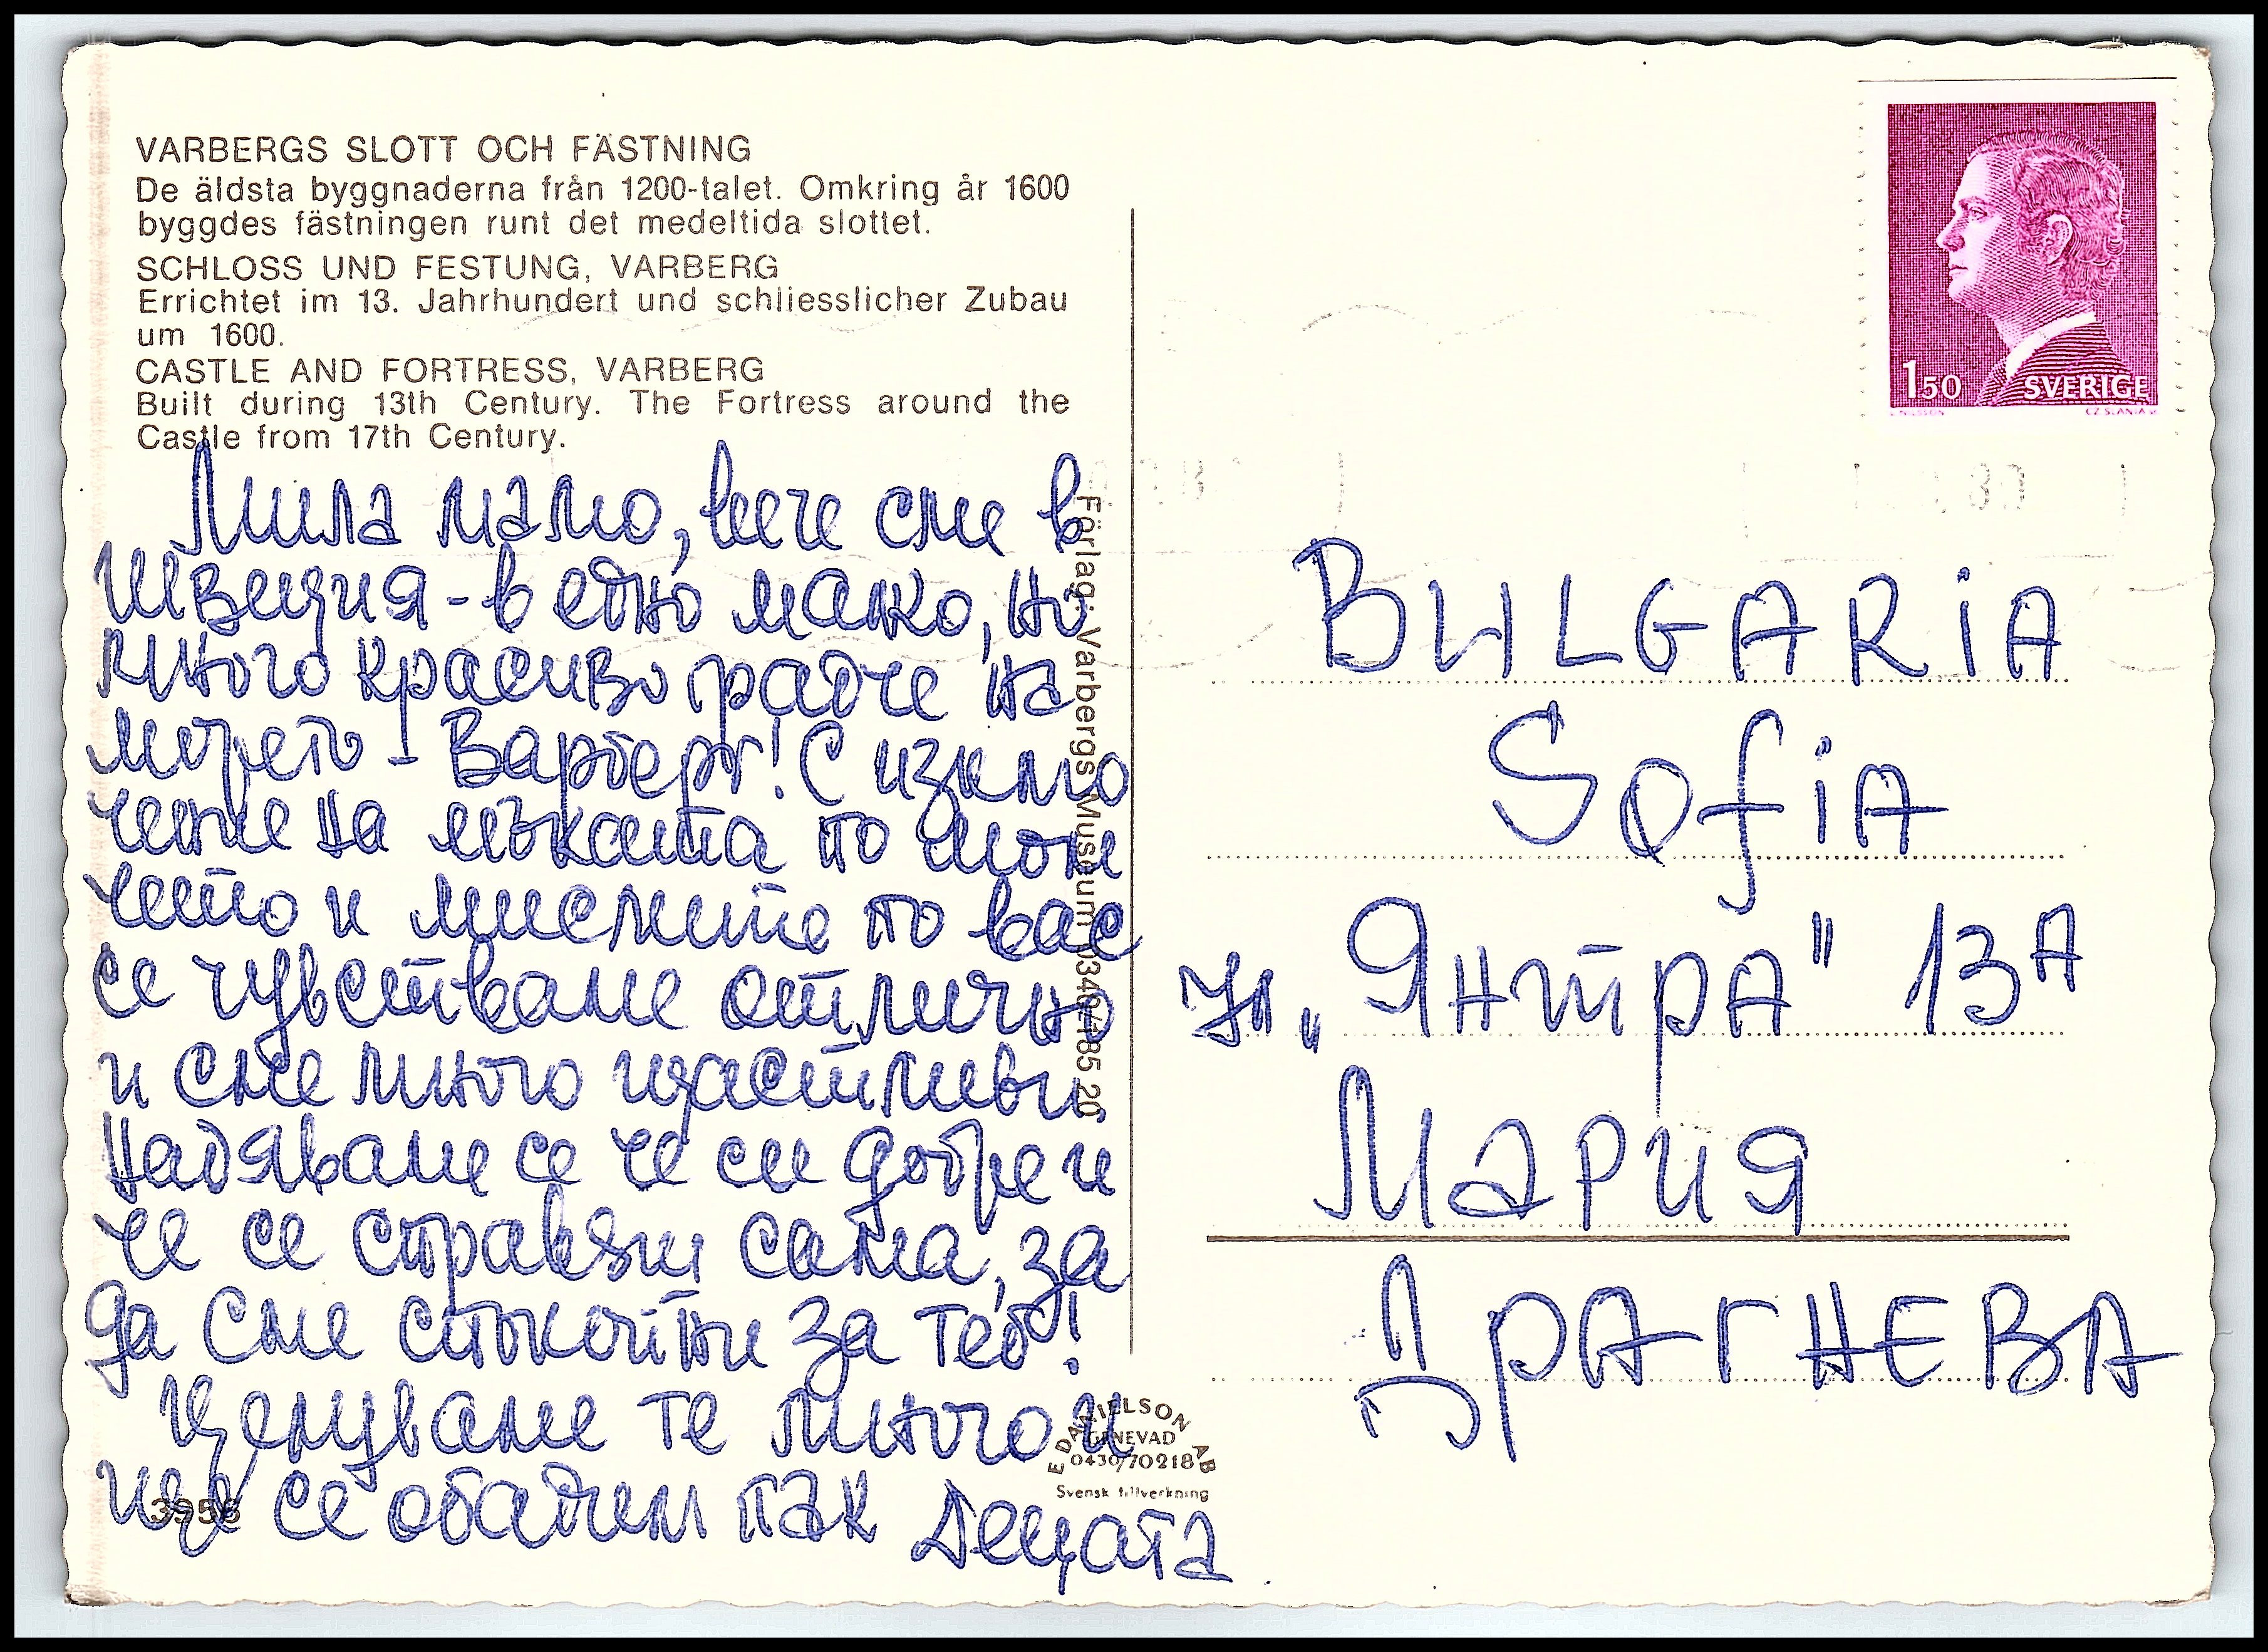 VARBERGS SLOTT OCH FÄSTNING
De äldsta byggnaderna från 1200-talet. Omkring år 1600
byggdes fästningen runt det medeltida slottet.
SCHLOSS UND FESTUNG, VARBERG
Errichtet im 13. Jahrhundert und schliesslicher Zubau
um 1600.
CASTLE AND FORTRESS, VARBERG
Built during 13th Century. The Fortress around the
Castle from 17th Century.
Мила мамо, вече сме в
Швеция - в едно малко, но
много красиво градче на
морето - Варберг! С изклю
чение на мъката по мом
чето и мислите по вас
се чувстваме отлично
и сме много щастливи.
Надяваме се че си добре и
че се справяш сама, за
да сме спокойни за теб!
Целуваме те много и
ще се обадим пак Децата
3956
Förlag: Varbergs Museum 0340/185 20
E DANIELSON AB
GENEVAD
0430/70218
Svensk tillverkning
150 SVERIGE
CZ SLANIA
BULGARIA
SofiA
ул. „Янтра" 13А
Мария
Драгнева